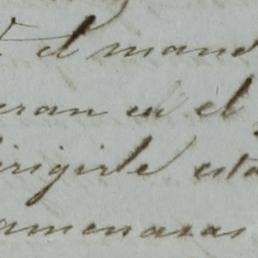 el mand
eran en el
irigirle esta
amenaras